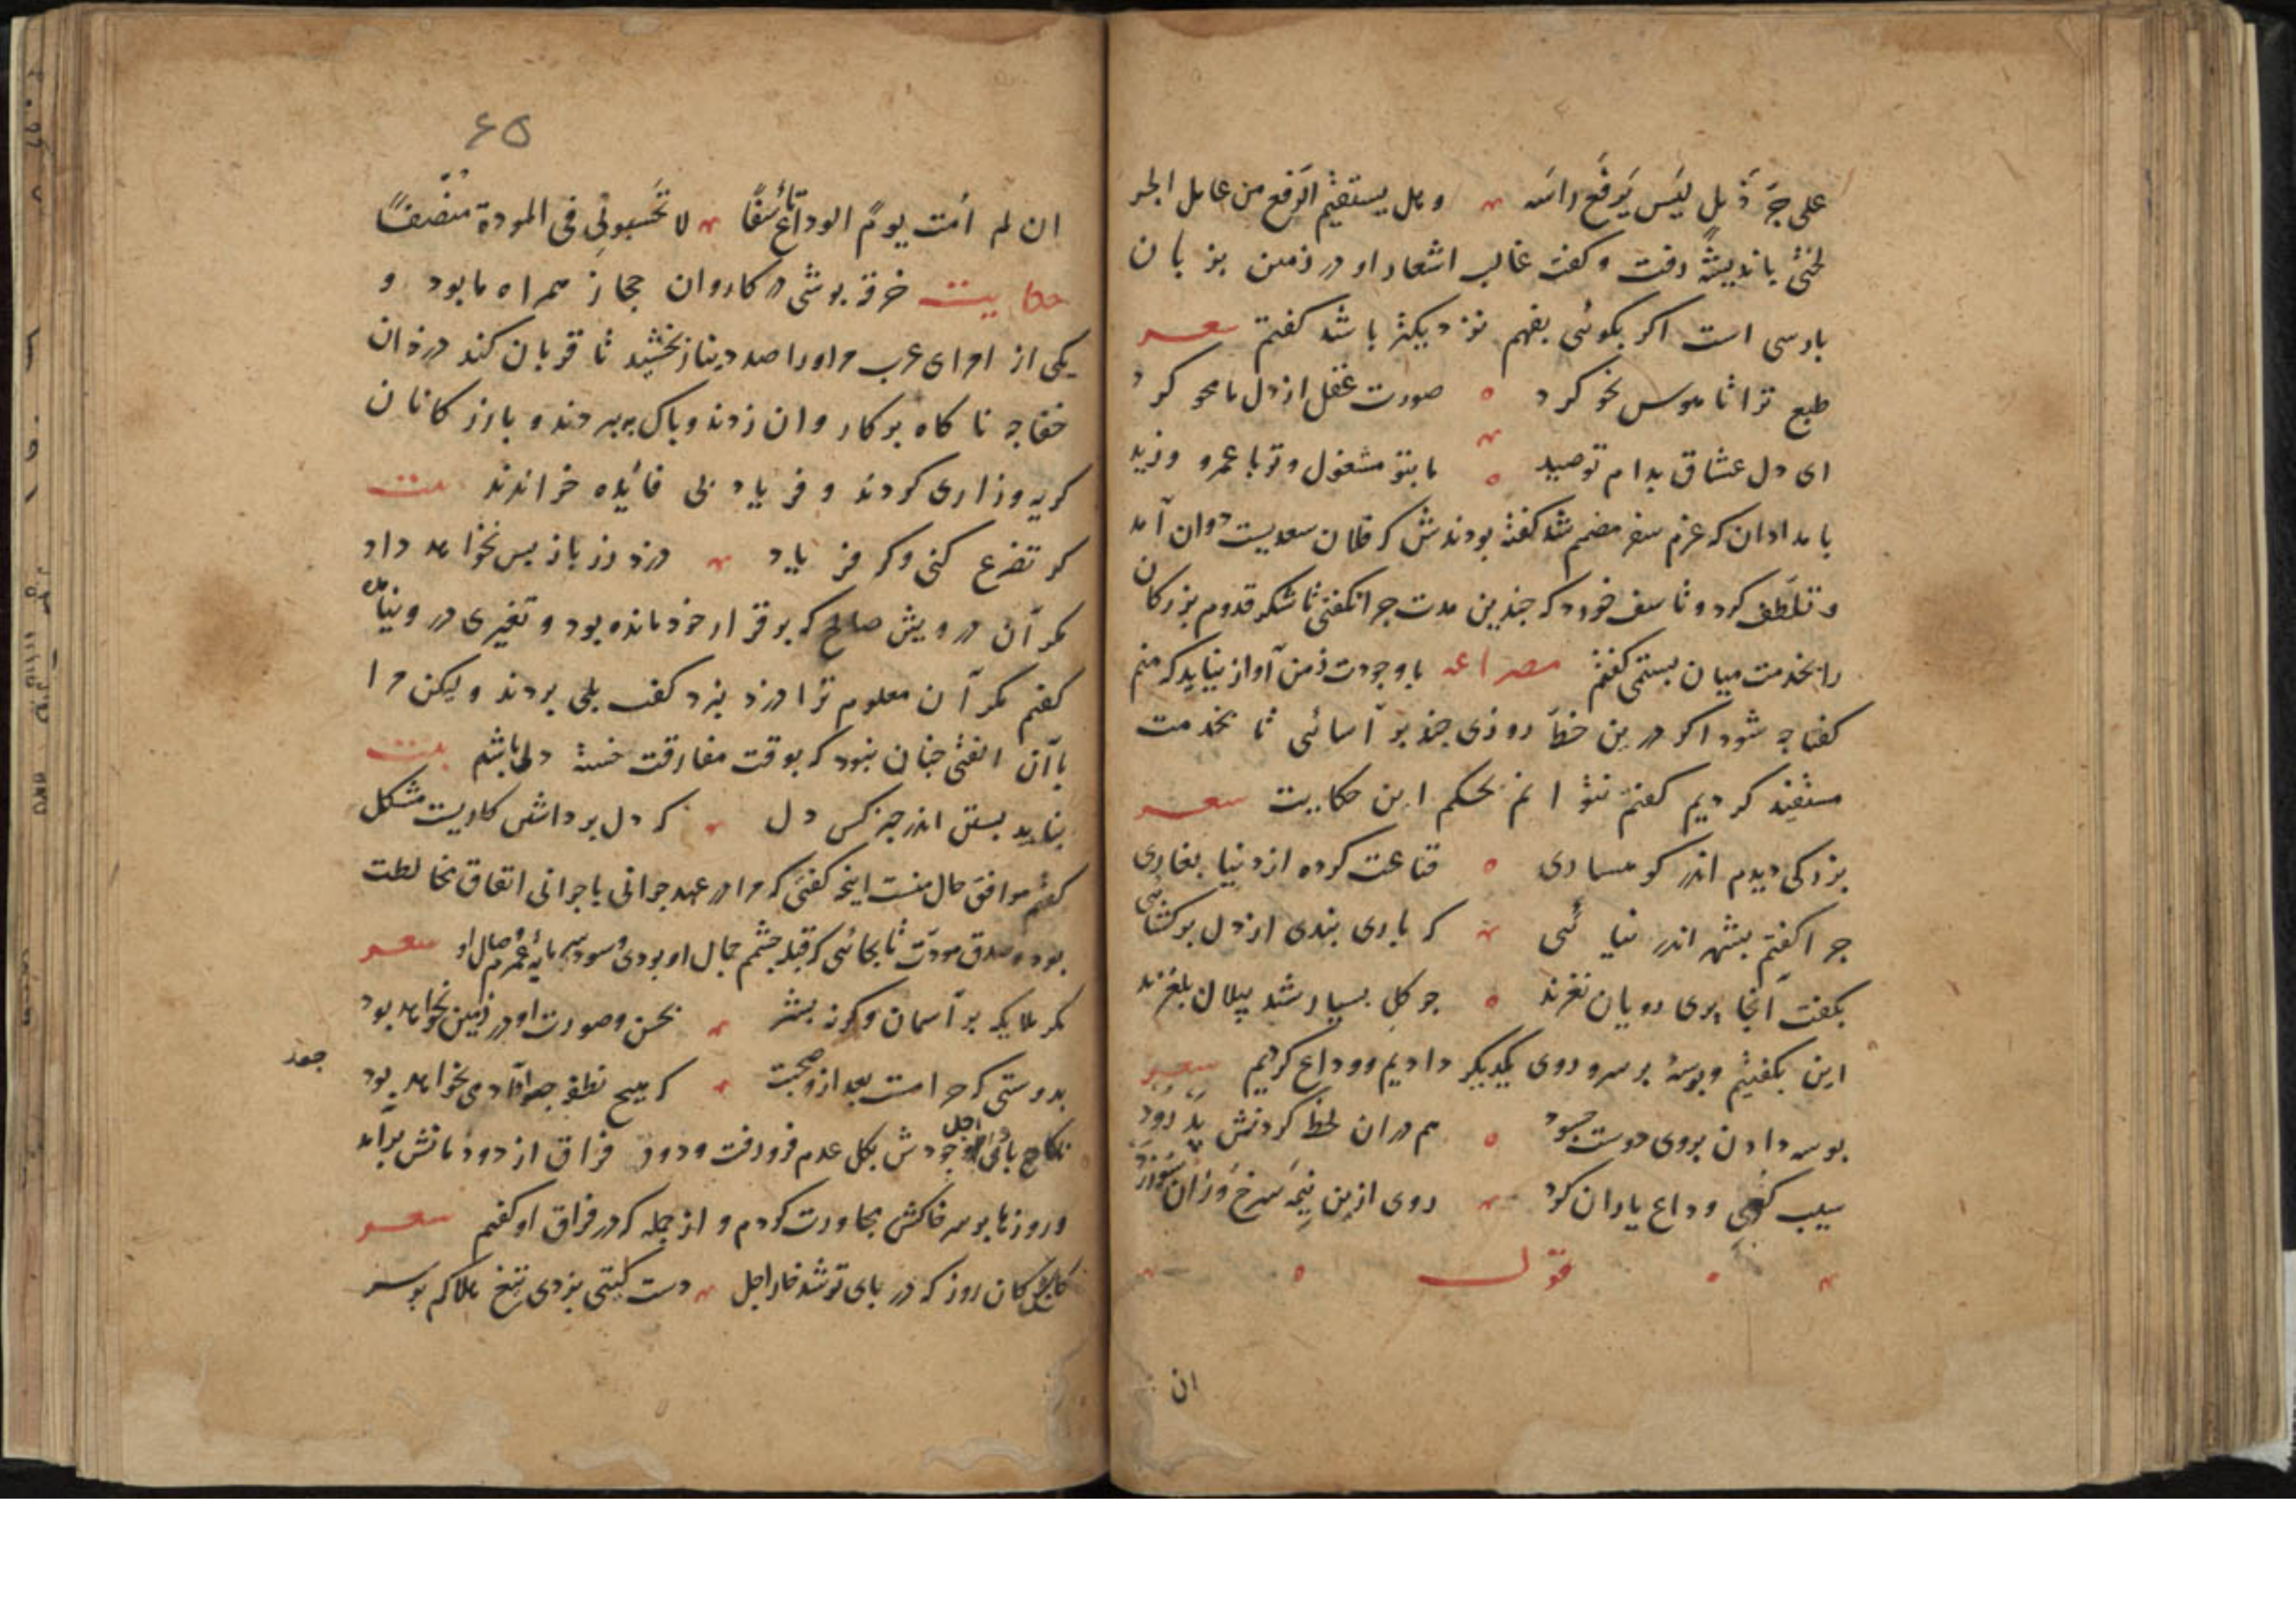 علی جَرِّ ذَیلٍ لَیسَ یَرفَع راسَه وهل یستقیم الرَفع من عامل الجر
لختی باندیشه رفت و کفت غالب اشعار او درزمین بز بان
بارسی است اکر بکوئی بفهم نزدیکتر باشد کفتم شعر
طبع ترا تا هوس نحو کرد صورت عقل از دل ما محو کرد
ای دل عشاق بدام تو صید ما بتو مشغول و تو با عمرو و زید
بامدادان که عزم سفر مصمم شد کفته بودندش که فلان سعدیست دوان آمد
و تلطّف کرد و تاسف خورد که جندین مدت جرا نکفتی تا شکر قدوم بزرکان
را بخدمت میان بستمی کفتم مصراعه با وجودت زمن آواز نیاید که منم
کفتا جه شود اکر درین خطّه روزی جند بر آسائی تا بخدمت
مستفید کردیم کفتم نتوانم بحکم این حکایت شعر
بزرکی دیدم اندر کوهساری قناعت کرده از دنیا بغاری
جرا کفتم بشهر اندر نیائی که باری بندی از دل برکشائی
بکفت آنجا پری رویان نغزند جو کل بسیار شد پیلان بلغزند
این بکفتیم و بوسهٔ بر سر و روی یکدیکر دادیم و وداع کردیم شعر
بوسه دادن بروی دوست جسود هم دران لحظه کردنش پدرود
سیب کوئی وداع یاران کرد روی ازین نیمَه سرخ وزان سو زرد
قول
ان
۶۵
ان لم اَمت یومَ الوداع تأسّفًا لا تحسبونی فی المودة منصفًا
حکایت خرقه بوشی در کاروان حجاز همراه ما بود و
یکی از امرای عرب مر اورا صد دینار بخشید تا قربان کند دزدان
خفاجه ناکاه بر کاروان زدند و پاک ببردند و بازرکانان
کریه و زاری کردند و فریاد بی فائیده خواندند بیت
کر تضرع کنی وکر فریاد دزد زر باز بس نخواهد داد
مکر آن درویش صالح که بر قرار خود مانده بود و تغیری درو نیامده
کفتم مکر آن معلوم ترا دزد نبرد کفت بلی بردند ولیکن مرا
با آن الفتی جنان نبود که بوقت مفارقت خسته دلی باشم بیت
نباید بستن اندر جیز کس دل که دل برداشتن کاریست مشکل
کفتم موافق حال منست اینچه کفتی که مرا در عهد جوانی با جوانی اتفاق مخالطت
بود و صدق مودّت تا بجائی که قبله جشمم جمال او بودی و سود سرمایهٔ عمرم وصال او شعر
مکر ملایکه بر آسمان وکرنه بشر بحسن و صورت او در زمین نخواهد بود
بدوستی که حرامست بعد ازو صحبت که هیچ نطفه جو او آدمی نخواهد بود
جمد
ناکاه بای وجودش بکل اجل عدم فرورفت و دود فراق از دودمانش برآمد
و روزها بر سر خاکش مجاورت کردم و از جمله که در فراق او کفتم شعر
کاش کان روز که در بای تو شد خار اجل دست کیتی بزدی تیغ هلاکم بر سر